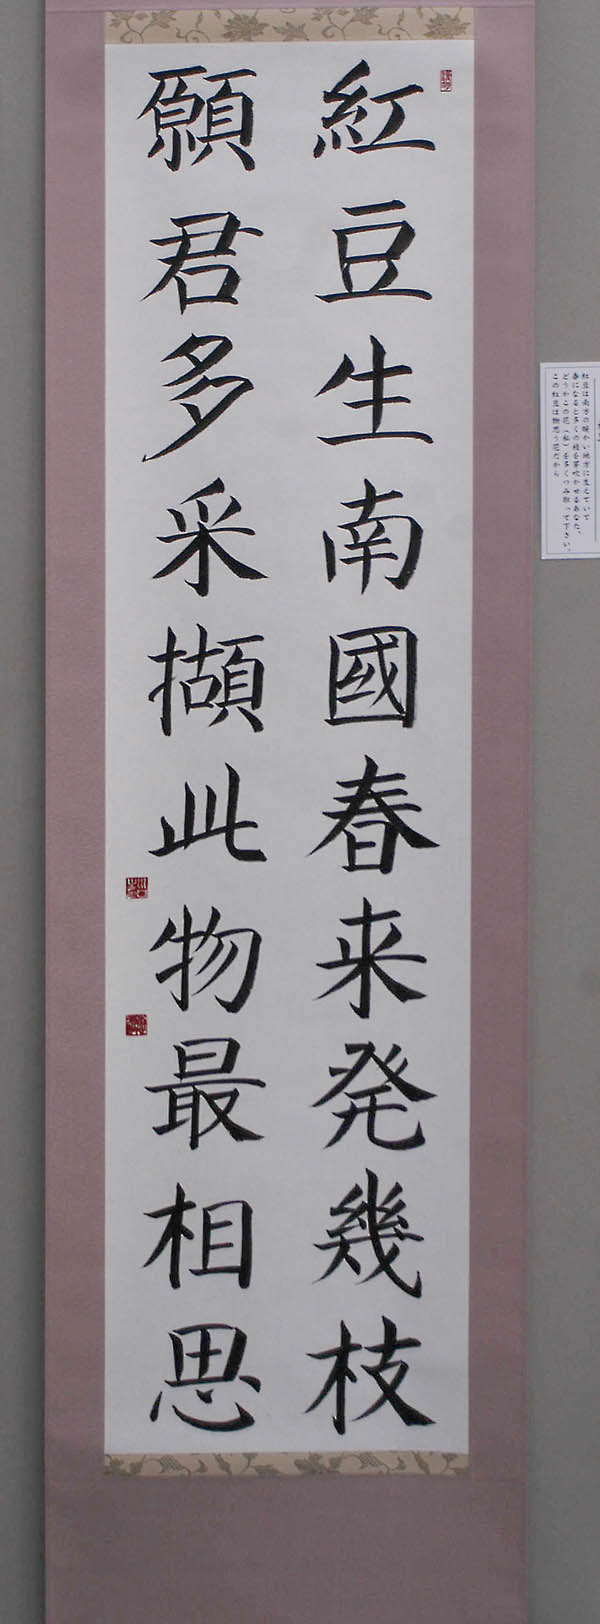 紅豆生南國春来発幾枝
願君多采擷此物最相思
紅豆は南方の暖かい地方に生えていて
春になると多くの枝を芽吹かせるあなた、
どうかこの花（私）を多くつみ取って下さい。
この紅豆は物思う花だから